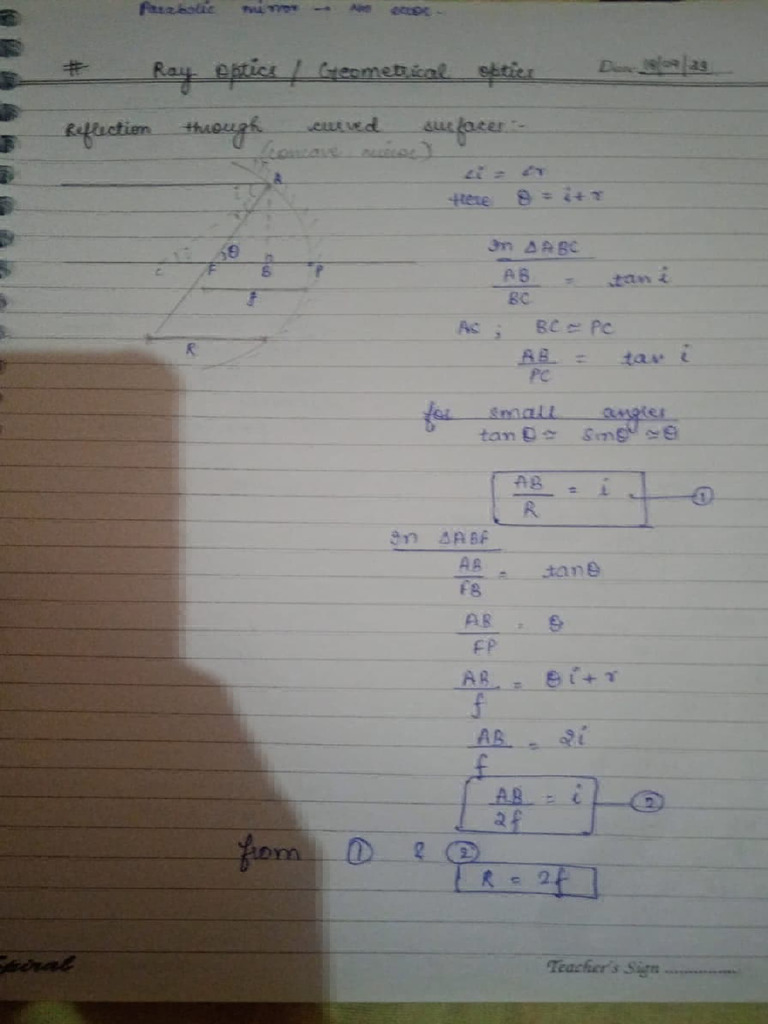 Parabolic mirror → No
# Ray Optics / Geometrical optics
Reflection through curved surfaces:-
(concave mirror)
A
θ
C F B P
f
R
∠i = ∠r
Here θ = i + r
In ΔABC
AB/BC = tan i
AC ; BC ≃ PC
AB/PC = tan i
for small angles
tan θ ≃ sin θ ≃ θ
AB/R = i — ①
In ΔABF
AB/FB = tan θ
AB/FP = θ
AB/f = θ i + r
AB/f = 2i
AB/2f = i — ②
from ① & ②
R = 2f
Spiral
Teacher's Sign ................